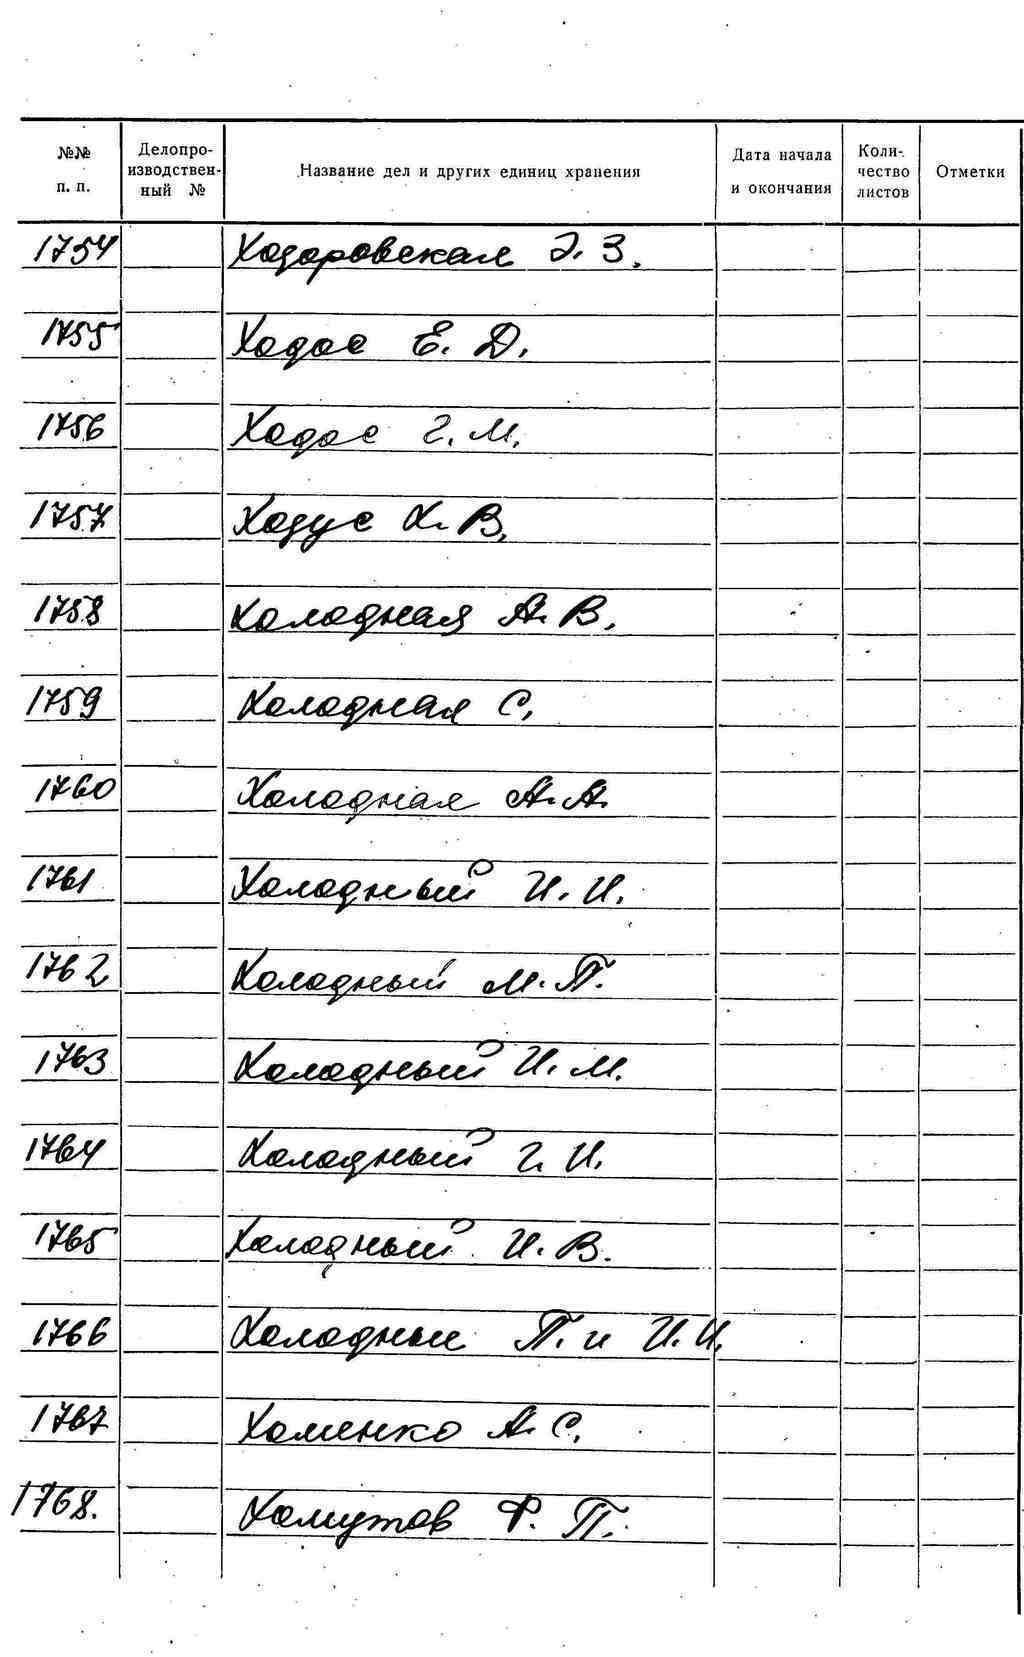 №№ п. п. Делопроизводственный № Название дел и других единиц хранения Дата начала и окончания Количество листов Отметки
1754 Ходоровская Э. З.
1755 Ходос Е. Д.
1756 Ходос Г. М.
1757 Ходус Х. В.
1758 Холодная А. В.
1759 Холодная С.
1760 Холодная А. А.
1761 Холодный И. И.
1762 Холодный М. П.
1763 Холодный И. М.
1764 Холодный Г. И.
1765 Холодный И. В.
1766 Холодные П. и И. И.
1767 Хоменко А. С.
1768. Хомутов Ф. П.